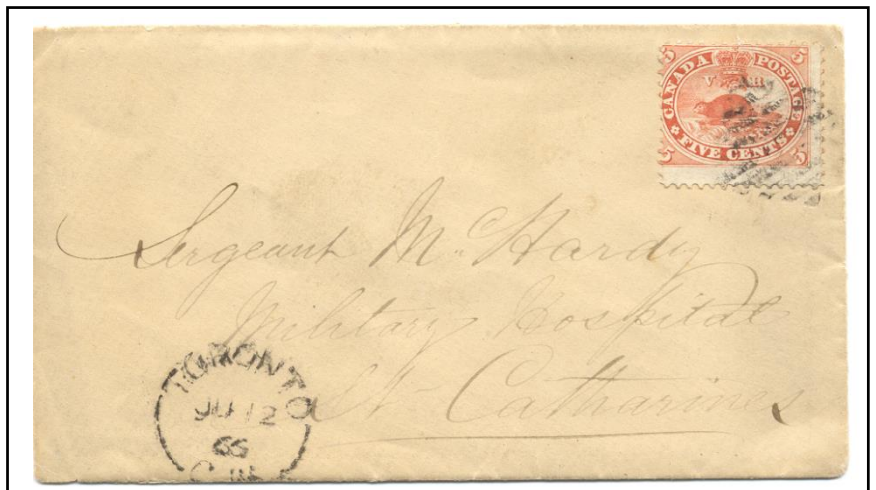 5 CANADA POSTAGE 5
V R
5 FIVE CENTS 5
Sergeant Mc Hardy
Military Hospital
St- Catharines
TORONTO
12
C.W.